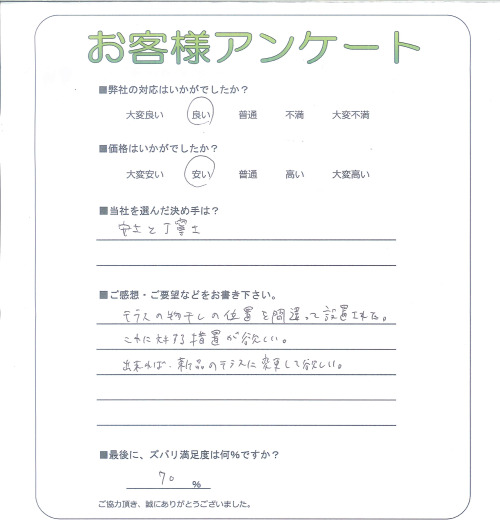 お客様アンケート
■弊社の対応はいかがでしたか？
大変良い 良い 普通 不満 大変不満
■価格はいかがでしたか？
大変安い 安い 普通 高い 大変高い
■当社を選んだ決め手は？
安さと丁寧さ
■ご感想・ご要望などをお書き下さい。
テラスの物干しの位置を間違って設置された。
これに対する措置が欲しい。
出来れば、新品のテラスに変更して欲しい。
■最後に、ズバリ満足度は何%ですか？
70 %
ご協力頂き、誠にありがとうございました。